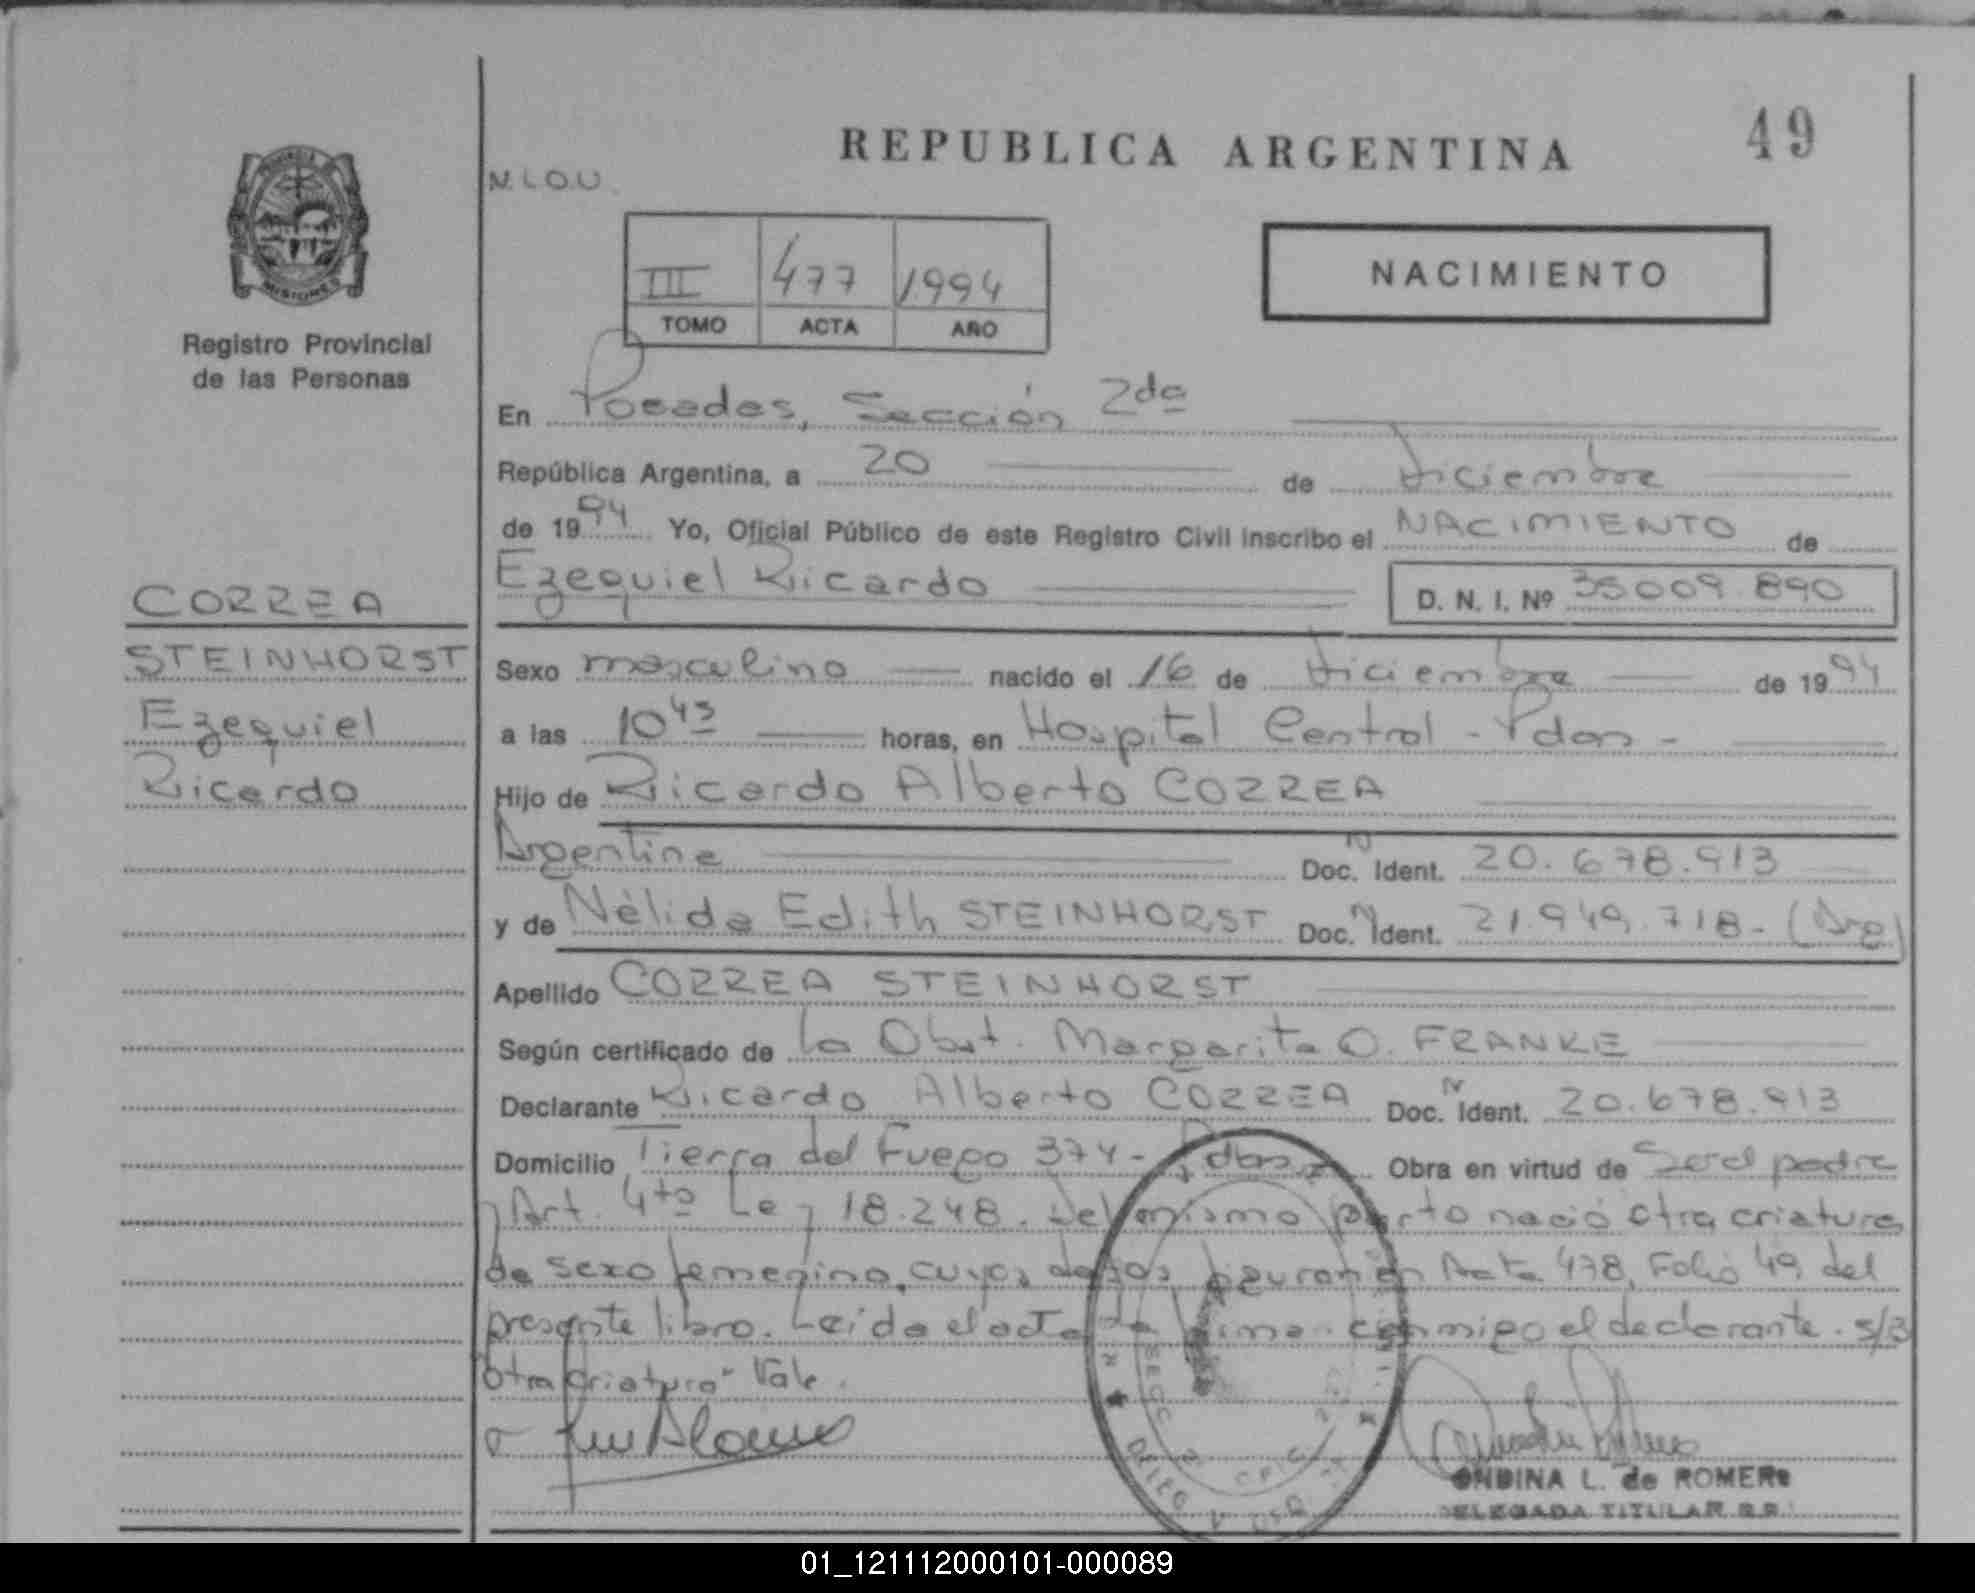 REPUBLICA ARGENTINA
49
PROVINCIA
MISIONES
Registro Provincial
de las Personas
N.L.O.U.
III 477 1994
TOMO ACTA AÑO
NACIMIENTO
En Posadas, Sección 2da
República Argentina, a 20 de diciembre
de 1994 Yo, Oficial Público de este Registro Civil inscribo el NACIMIENTO de
Ezequiel Ricardo D. N. I. Nº 35009.890
CORREA
STEINHORST
Ezequiel
Ricardo
Sexo masculino nacido el 16 de diciembre de 1994
a las 10 45 horas, en Hospital Central - Pdas -
Hijo de Ricardo Alberto CORREA
Argentina Doc. N Ident. 20.678.913
y de Nélida Edith STEINHORST Doc. N Ident. 21.949.718 - (Arg)
Apellido CORREA STEINHORST
Según certificado de la Obst. Margarita O. FRANKE
Declarante Ricardo Alberto CORREA Doc. N Ident. 20.678.913
Domicilio Tierra del Fuego 374 - Pdas. Obra en virtud de Ser el padre
y Art. 4to Ley 18.248. Del mismo parto nació otra criatura
de sexo femenino, cuyos datos figuran en Acta 478, Folio 49 del
presente libro. Leida el acta la firma conmigo el declarante. S/B
"otra criatura" Vale.
ONDINA L. de ROMERO
DELEGADA TITULAR R.P.
01_121112000101-000089